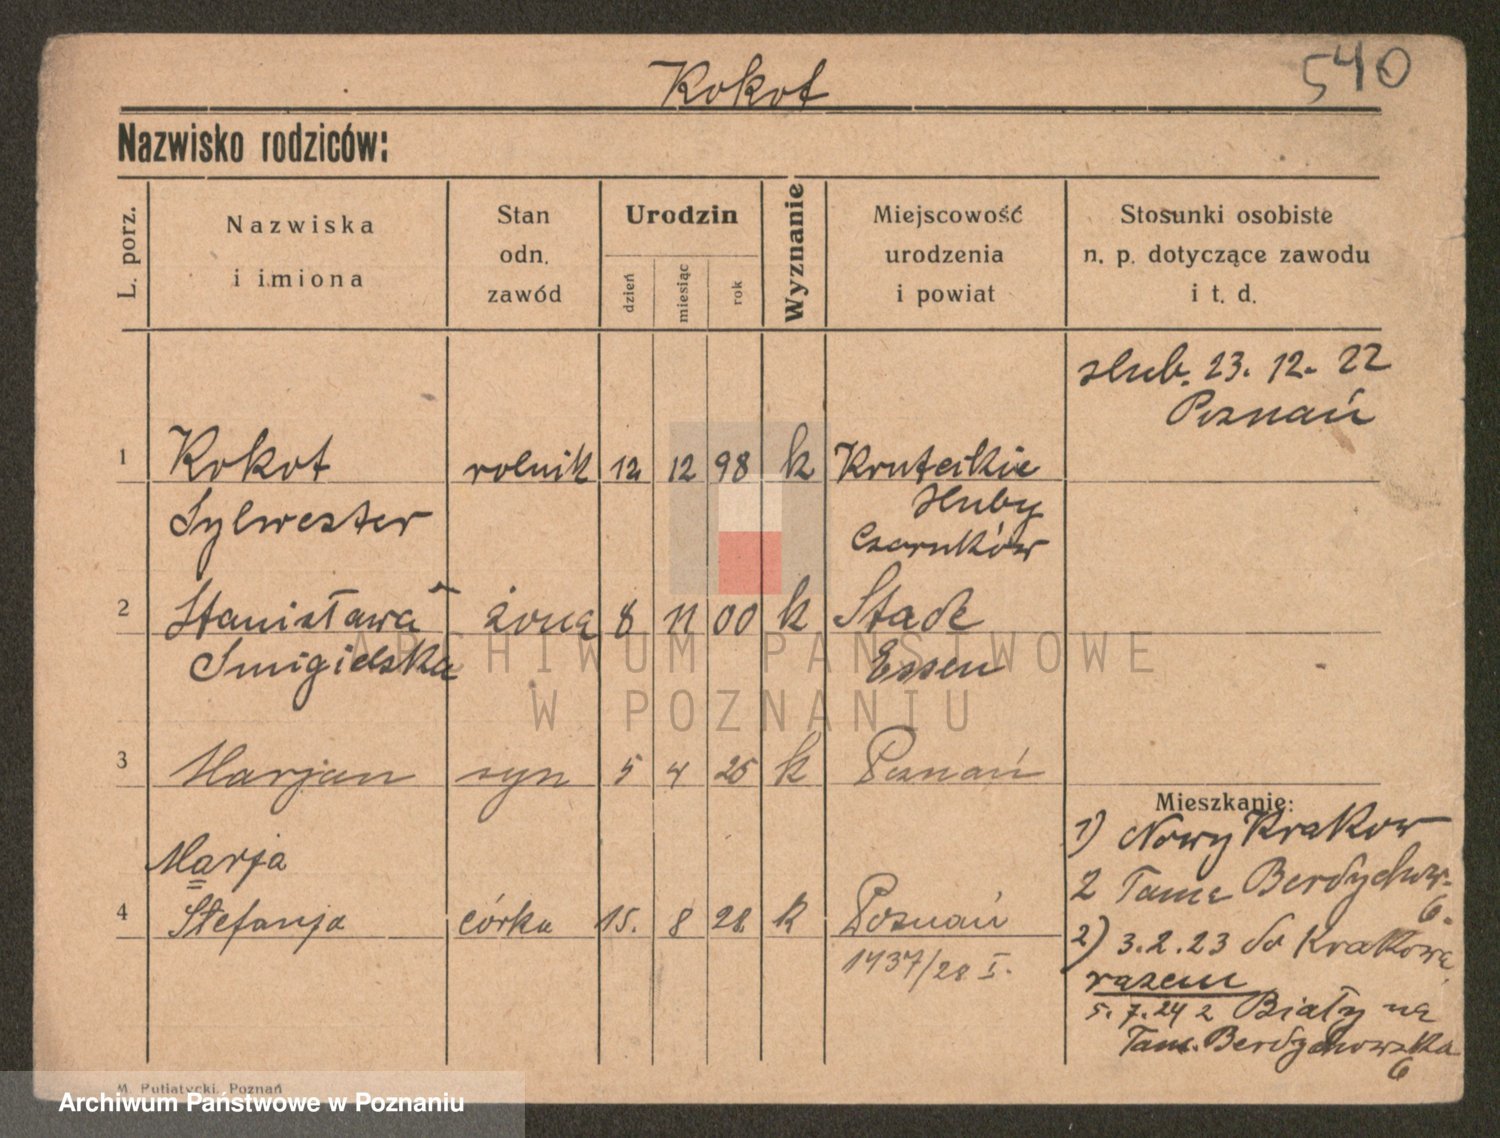 Kokot
540
Nazwisko rodziców:
L. porz.
Nazwiska
i imiona
Stan
odn.
zawód
Urodzin
dzień
miesiąc
rok
Wyznanie
Miejscowość
urodzenia
i powiat
Stosunki osobiste
n. p. dotyczące zawodu
i t. d.
slub. 23. 12. 22
Poznań
1 Kokot rolnik 12 12 98 k
Sylwester
Huby
Czarnków
2 Stanisława żona 8 11 00 k Stade
Smigielska Essen
3 Marjan syn 5 4 25 k Poznań
Mieszkanie:
1) Nowy Krakow
Marja
2 Tama Berdychow.
6.
4 Stefanja córka 15. 8 28 k Poznań
2) 3.2.23 do Krakowa
1437/28 I.
razem
5. 7. 24 z Biały na
Tam. Berdychowska
6
ARCHIWUM PAŃSTWOWE
W POZNANIU
M. Putiatycki, Poznań
Archiwum Państwowe w Poznaniu